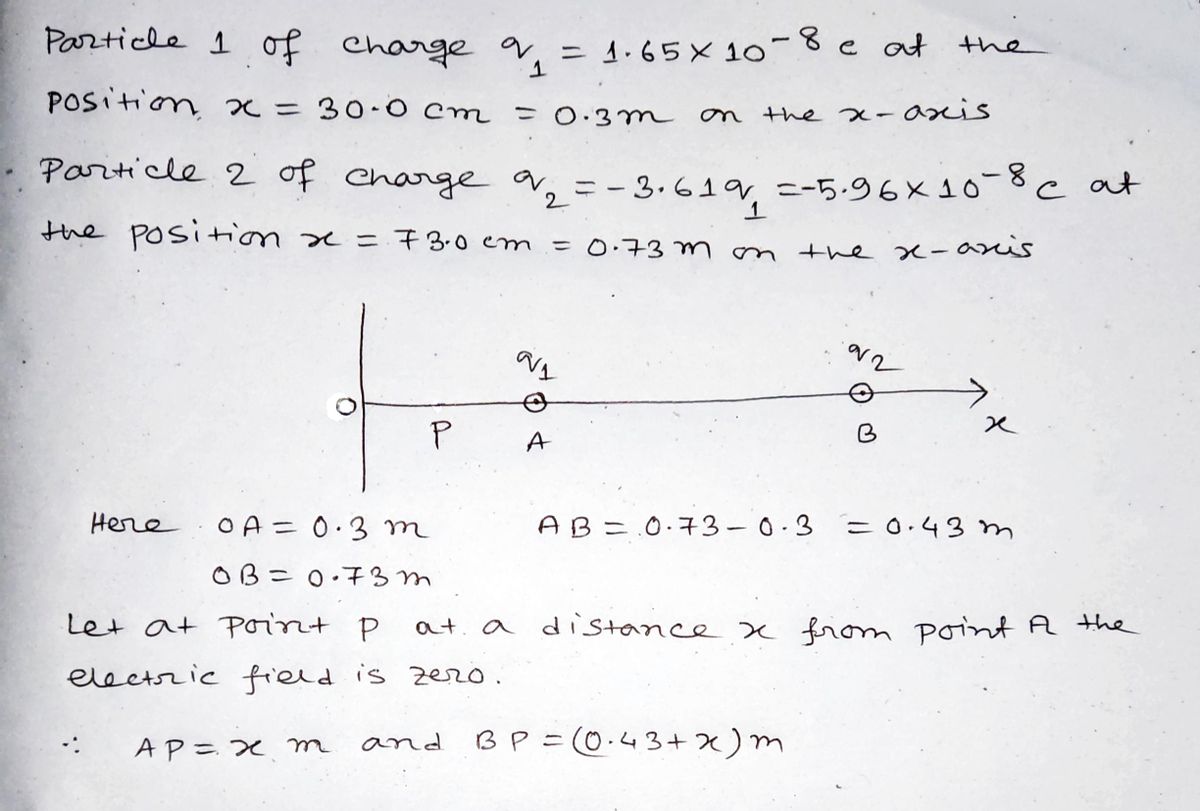 Particle 1 of charge q₁ = 1.65 × 10⁻⁸ c at the
position, x = 30.0 cm = 0.3m on the x-axis
Particle 2 of charge q₂ = -3.61q₁ = -5.96 × 10⁻⁸ c at
the position x = 73.0 cm = 0.73 m on the x-axis
q₁ q₂
O P A B x
Here OA = 0.3 m AB = 0.73 - 0.3 = 0.43 m
OB = 0.73 m
Let at point P at a distance x from point A the
electric field is zero.
∴ AP = x m and BP = (0.43 + x) m